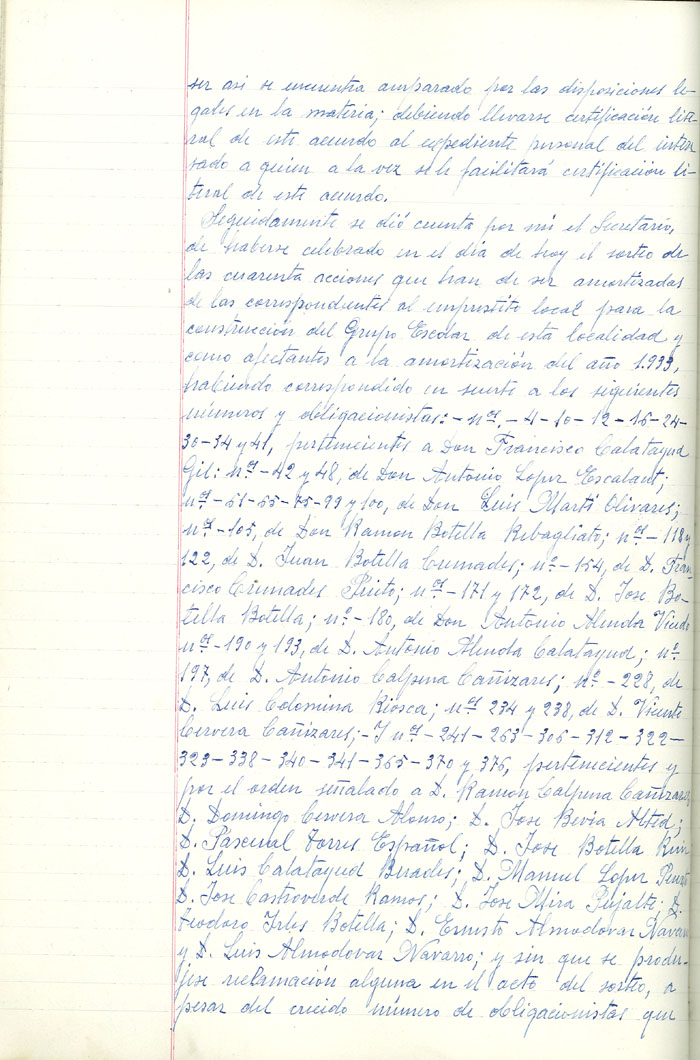 ser asi se encuentra amparado por las disposiciones le-
gales en la materia; debiendo llevarse certificación lite-
ral de este acuerdo al expediente personal del intere
sado a quien a la vez se le facilitará certificación li-
teral de este acuerdo.
Seguidamente se dió cuenta por mi el Secretario,
de haberse celebrado en el día de hoy el sorteo de
las cuarenta acciones que han de ser amortizadas
de las correspondientes al emprestito local para la
construcción del Grupo Escolar de esta localidad y
como afectantes a la amortización del año 1.933,
habiendo correspondido en suerte a los siguientes
números y obligacionistas:- nos.- 4-10-12-16-24-
30-34 y 41, pertenecientes a Don Francisco Calatayud
Gil: nos-42 y 48, de Don Antonio Lopez Escalant;
nos-51-55-75-99 y 100, de Don Luis Martí Olivares;
nº-105, de Don Ramon Botella Rebagliato; nos-118 y
122, de D. Juan Botella Cremades; nº-154, de D. Fran
cisco Cremades Prieto; nos-171 y 172, de D. Jose Bo-
tella Botella; nº-180, de Don Antonio Almela
nos-190 y 193, de D. Antonio Almela Calatayud; nº
197, de D. Antonio Calpena Cañizares; nº-228, de
D. Luis Colomina Biosca; nos 234 y 238, de D. Vicente
Cervera Cañizares;- Y nos-241-263-306-312-322-
323-338-340-341-365-370 y 376, pertenecientes y
por el orden señalado a D. Ramon Calpena Cañizares
D. Domingo Cervera Alonso; D. Jose Bevia Abted;
D. Pascual Torres Español; D. Jose Botella
D. Luis Calatayud; D. Manuel Lopez
D. Jose Castroverde Ramos; D. Jose Mira Pujalte; D.
Teodoro Irles Botella; D. Ernesto Almodovar Navarro
y D. Luis Almodovar Navarro; y sin que se produ-
jese reclamación alguna en el acto del sorteo, a
pesar del crecido número de obligacionistas que